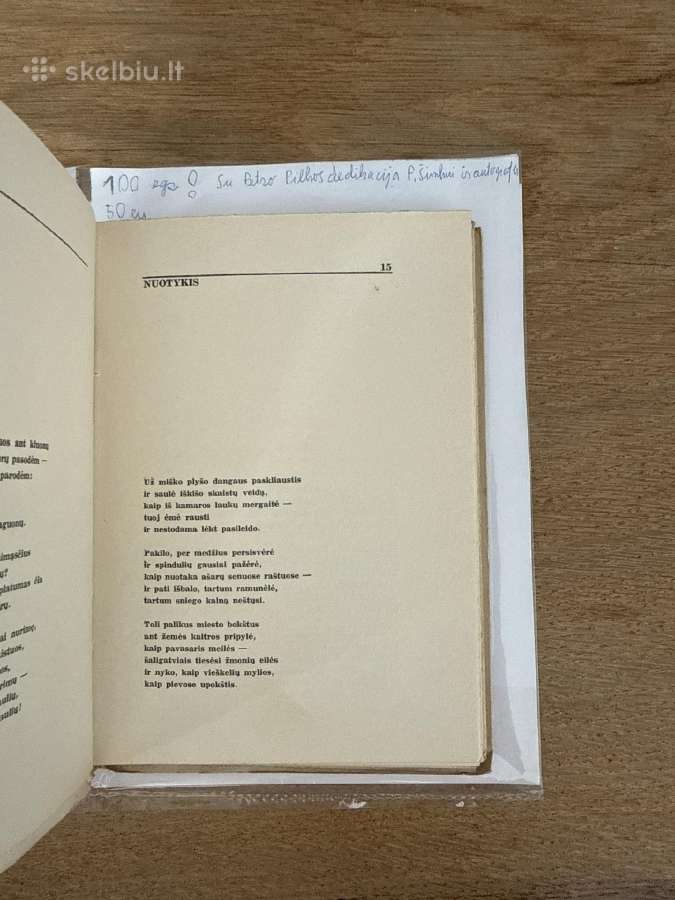 skelbiu.lt
100 egz. ! Su Petro dedikacija P. ir autografu
50 eur
15
NUOTYKIS
Už miško plyšo dangaus paskliaustis
ir saulė iškišo skaistų veidą,
kaip iš kamaros laukų mergaitė —
tuoj ėmė rausti
ir nestodama lėkt pasileido.
Pakilo, per medžius persisvėrė
ir spindulių gausiai pažėrė,
kaip nuotaka ašarų senuose raštuose —
ir pati išbalo, tartum ramunėlė,
tartum sniego kalną neštųsi.
Toli palikus miesto bokštus
ant žemės kaitros pripylė,
kaip pavasaris meilės —
šaligatviais tiesėsi žmonių eilės
ir nyko, kaip vieškelių mylios,
kaip pievose upokštis.
uos ant kluonų
orų pasodėm —
parodėm:
aguonų.
imąsčius
ų?
platumas čia
rų.
ai nurimę,
istuos,
os,
rimų —
aulių,
aulių!